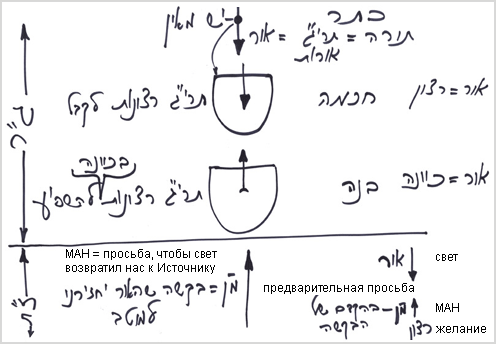 כתר
יש מאין
אור = תרי"ג = תורה
אורות
תרי"ג רצונות לקבל
חכמה
אור = רצון
בכוונה
תרי"ג רצונות להשפיע
בנה
אור = כוונה
МАН = просьба, чтобы свет
возвратил нас к Источнику
מ"ן = בקשה שהאור יחזירנו
למוטב
אור
свет
предварительная просьба
מ"ן - בהקדם של
הבקשה
רצון
МАН
желание